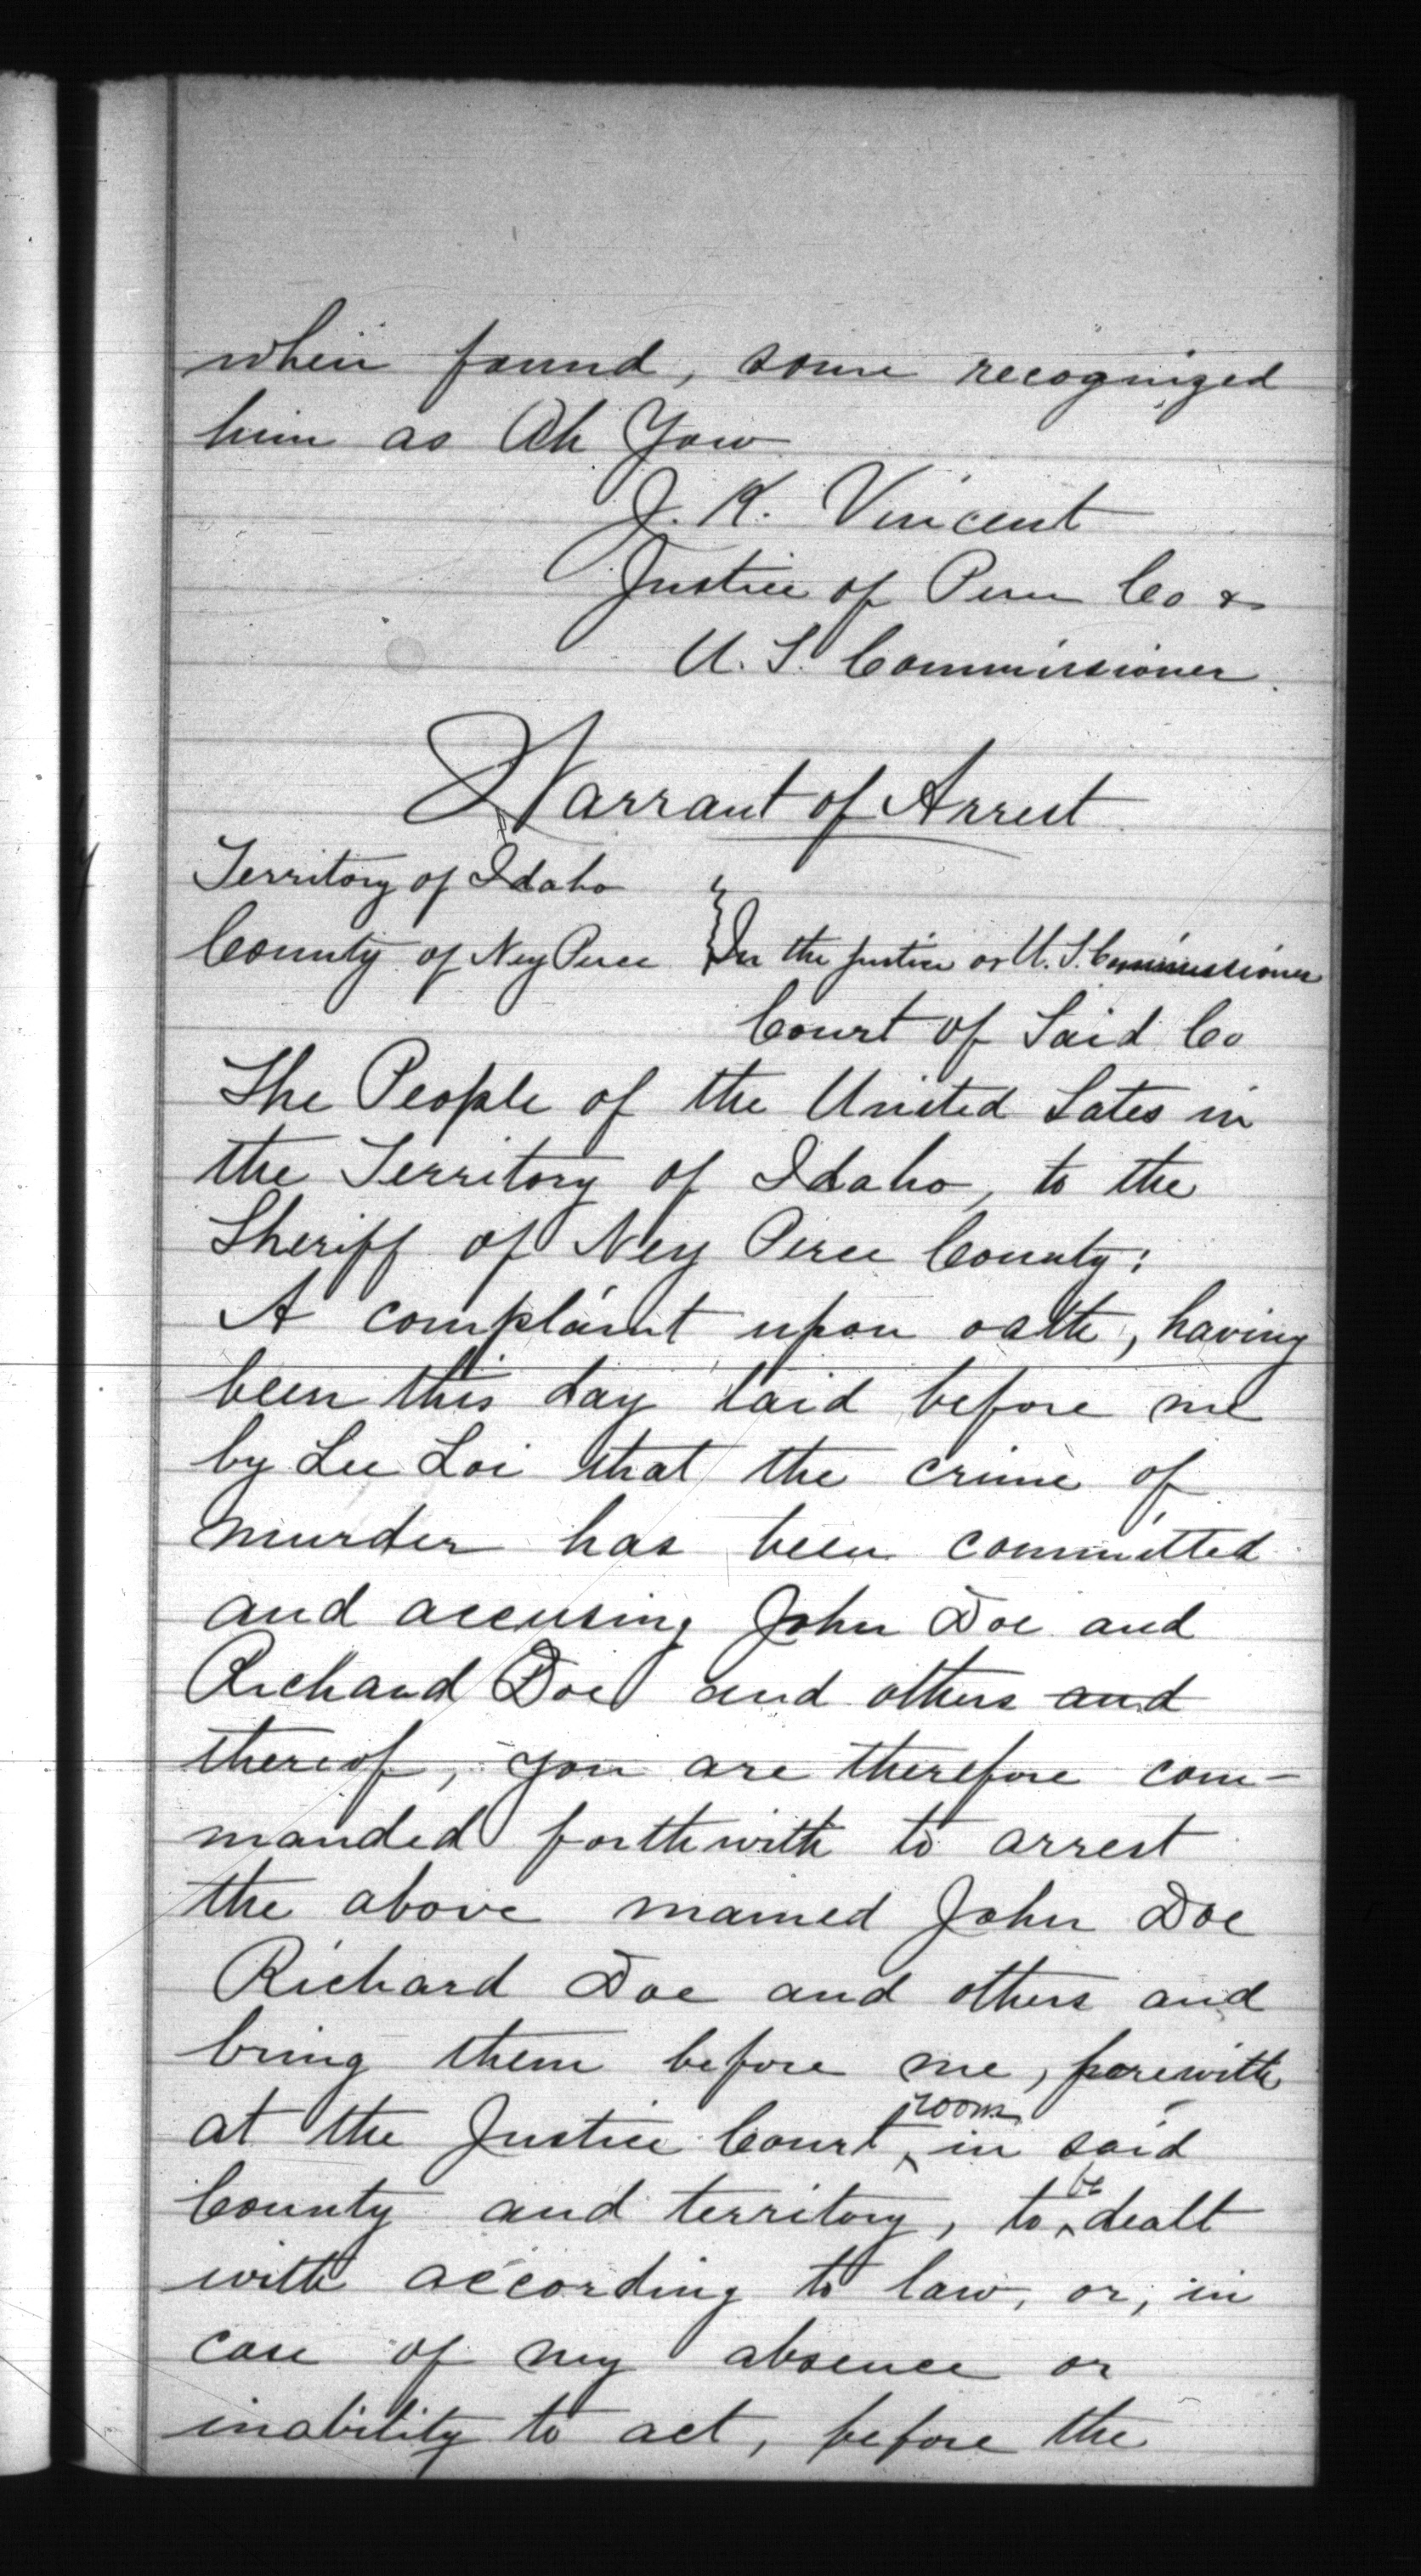 when found, some recognized
him as Ah Yow
J. K. Vincent
Justice of Peace Co &
U. S. Commissioner.
Warrant of Arrest
Territory of Idaho
County of Nez Perce } In the justice or U. S. Commissioner
Court of Said Co
The People of the United Sates in
the Territory of Idaho, to the
Sheriff of Nez Perce County:
A complaint upon oath, having
been this day laid before me
by Lee Loi that the crime of
murder has been committed
and accusing John Doe and
Richard Doe and others and
thereof, you are therefore com-
manded forthwith to arrest
the above named John Doe
Richard Doe and others and
bring them before me, forewith
at the Justice Court room in said
County and territory, to be dealt
with according to law, or, in
case of my absence or
inability to act, before the